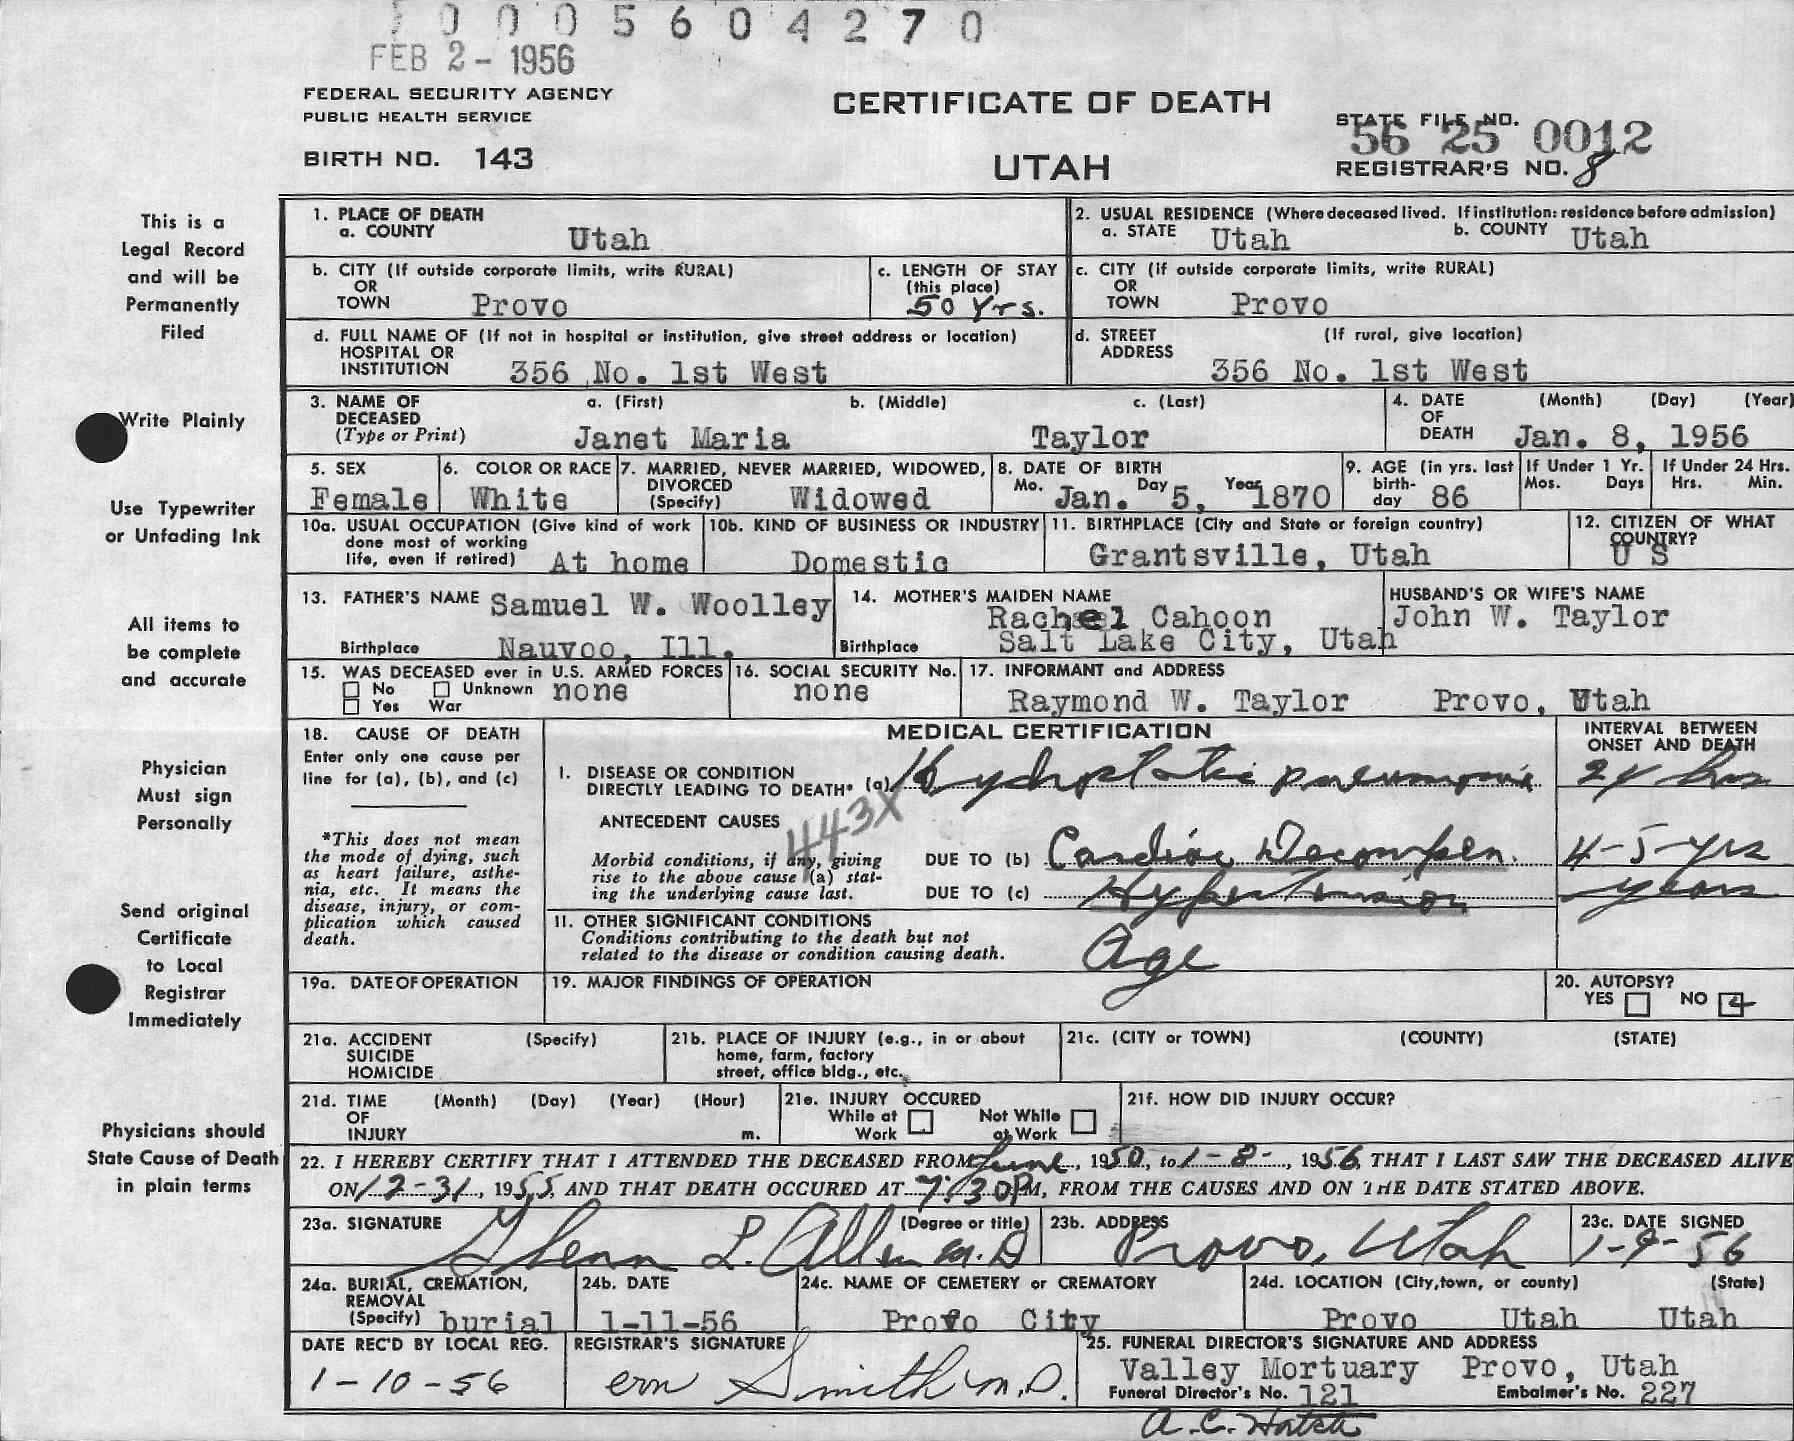 10005604270
FEB 2 - 1956
FEDERAL SECURITY AGENCY
PUBLIC HEALTH SERVICE
BIRTH NO. 143
CERTIFICATE OF DEATH
UTAH
STATE FILE NO.
56 25 0012
REGISTRAR'S NO. 8
This is a
Legal Record
and will be
Permanently
Filed
Write Plainly
Use Typewriter
or Unfading Ink
All items to
be complete
and accurate
Physician
Must sign
Personally
Send original
Certificate
to Local
Registrar
Immediately
Physicians should
State Cause of Death
in plain terms
1. PLACE OF DEATH
a. COUNTY Utah
2. USUAL RESIDENCE (Where deceased lived. If institution: residence before admission)
a. STATE Utah b. COUNTY Utah
b. CITY (If outside corporate limits, write RURAL)
OR
TOWN Provo
c. LENGTH OF STAY
(this place)
50 Yrs.
c. CITY (if outside corporate limits, write RURAL)
OR
TOWN Provo
d. FULL NAME OF (If not in hospital or institution, give street address or location)
HOSPITAL OR
INSTITUTION 356 No. 1st West
d. STREET (If rural, give location)
ADDRESS
356 No. 1st West
3. NAME OF a. (First) b. (Middle) c. (Last)
DECEASED
(Type or Print) Janet Maria Taylor
4. DATE (Month) (Day) (Year)
OF
DEATH Jan. 8, 1956
5. SEX
Female
6. COLOR OR RACE
White
7. MARRIED, NEVER MARRIED, WIDOWED,
DIVORCED
(Specify) Widowed
8. DATE OF BIRTH
Mo. Day Year
Jan. 5, 1870
9. AGE (in yrs. last
birth-
day 86
If Under 1 Yr.
Mos. Days
If Under 24 Hrs.
Hrs. Min.
10a. USUAL OCCUPATION (Give kind of work
done most of working
life, even if retired) At home
10b. KIND OF BUSINESS OR INDUSTRY
Domestic
11. BIRTHPLACE (City and State or foreign country)
Grantsville, Utah
12. CITIZEN OF WHAT
COUNTRY?
U S
13. FATHER'S NAME Samuel W. Woolley
Birthplace Nauvoo, Ill.
14. MOTHER'S MAIDEN NAME
Rachel Cahoon
Birthplace Salt Lake City, Utah
HUSBAND'S OR WIFE'S NAME
John W. Taylor
15. WAS DECEASED ever in U.S. ARMED FORCES
No Unknown none
Yes War
16. SOCIAL SECURITY No.
none
17. INFORMANT and ADDRESS
Raymond W. Taylor Provo, Utah
18. CAUSE OF DEATH
Enter only one cause per
line for (a), (b), and (c)
*This does not mean
the mode of dying, such
as heart failure, asthe-
nia, etc. It means the
disease, injury, or com-
plication which caused
death.
MEDICAL CERTIFICATION
INTERVAL BETWEEN
ONSET AND DEATH
I. DISEASE OR CONDITION
DIRECTLY LEADING TO DEATH* (a) Hydrostatic pneumonia 24 hrs
443X
ANTECEDENT CAUSES
Morbid conditions, if any, giving
rise to the above cause (a) stat-
ing the underlying cause last.
DUE TO (b) Cardiac Decompen. 4-5-yrs
DUE TO (c) Hypertension years
II. OTHER SIGNIFICANT CONDITIONS
Conditions contributing to the death but not
related to the disease or condition causing death.
Age
19a. DATE OF OPERATION
19. MAJOR FINDINGS OF OPERATION
20. AUTOPSY?
YES NO
21a. ACCIDENT (Specify)
SUICIDE
HOMICIDE
21b. PLACE OF INJURY (e.g., in or about
home, farm, factory
street, office bldg., etc.
21c. (CITY or TOWN) (COUNTY) (STATE)
21d. TIME (Month) (Day) (Year) (Hour)
OF
INJURY m.
21e. INJURY OCCURED
While at Not While
Work at Work
21f. HOW DID INJURY OCCUR?
22. I HEREBY CERTIFY THAT I ATTENDED THE DECEASED FROM June, 1950, to 1-8-, 1956, THAT I LAST SAW THE DECEASED ALIVE
ON 12-31, 1955, AND THAT DEATH OCCURED AT 7:30 PM, FROM THE CAUSES AND ON THE DATE STATED ABOVE.
23a. SIGNATURE (Degree or title)
Glenn L. Allen M.D
23b. ADDRESS
Provo, Utah
23c. DATE SIGNED
1-9-56
24a. BURIAL, CREMATION,
REMOVAL
(Specify) burial
24b. DATE
1-11-56
24c. NAME OF CEMETERY or CREMATORY
Provo City
24d. LOCATION (City, town, or county) (State)
Provo Utah Utah
DATE REC'D BY LOCAL REG.
1-10-56
REGISTRAR'S SIGNATURE
Smith M.D.
25. FUNERAL DIRECTOR'S SIGNATURE AND ADDRESS
Valley Mortuary Provo, Utah
Funeral Director's No. 121 Embalmer's No. 227
A.C. Hatch